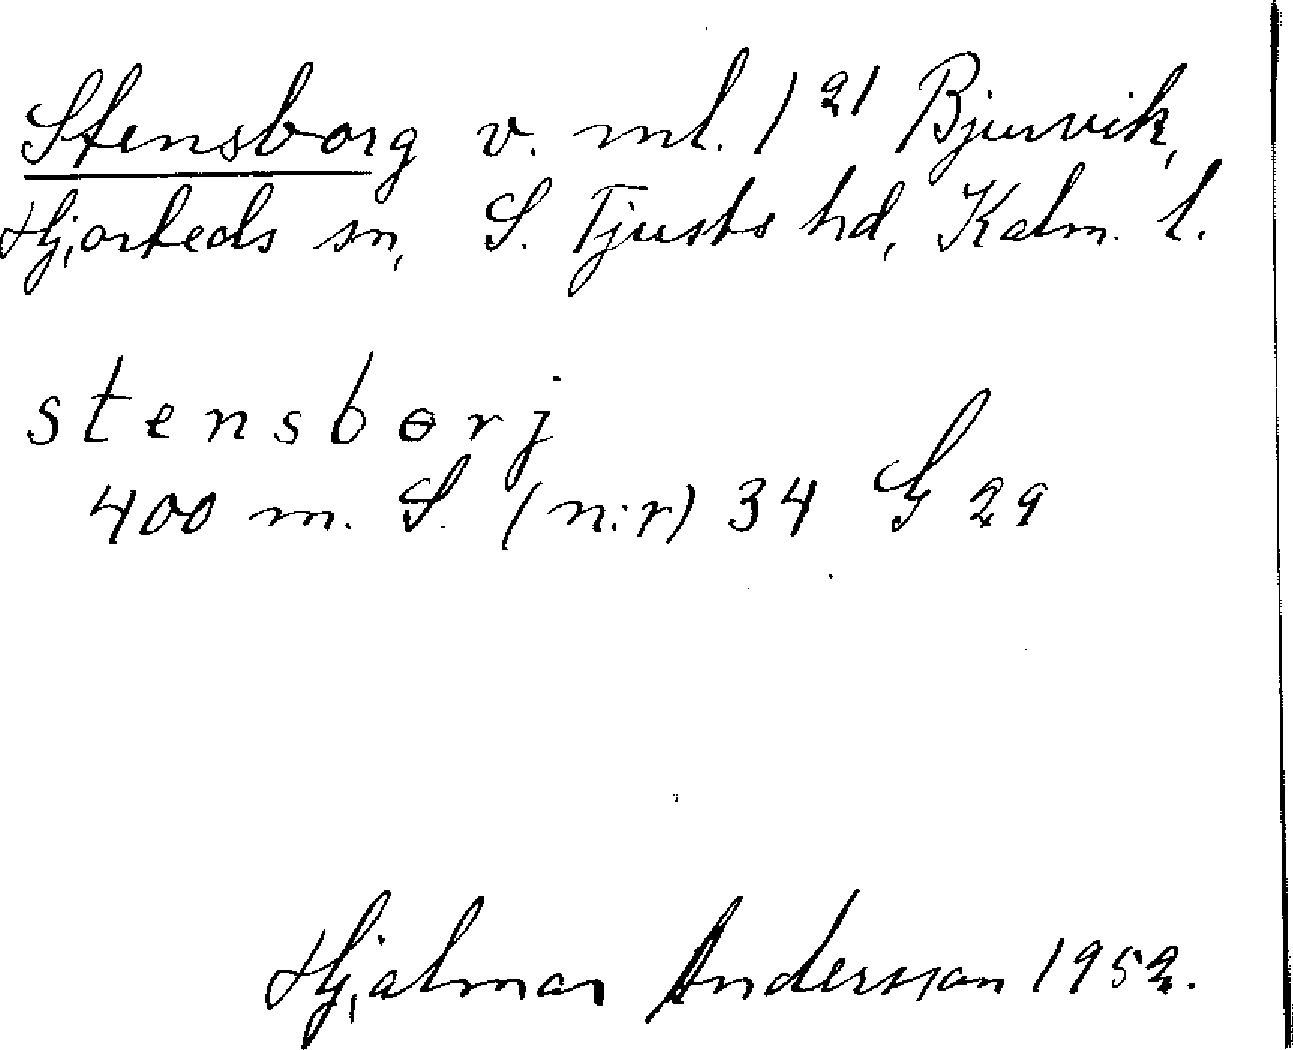 Stensborg v. ml. 1²¹ Bjurvik,
Hjorteds sn, S. Tjusts hd, Kalm. l.
stensbɵrj
400 m. S. (n:r) 34 G 29
Hjalmar Andersson 1952.